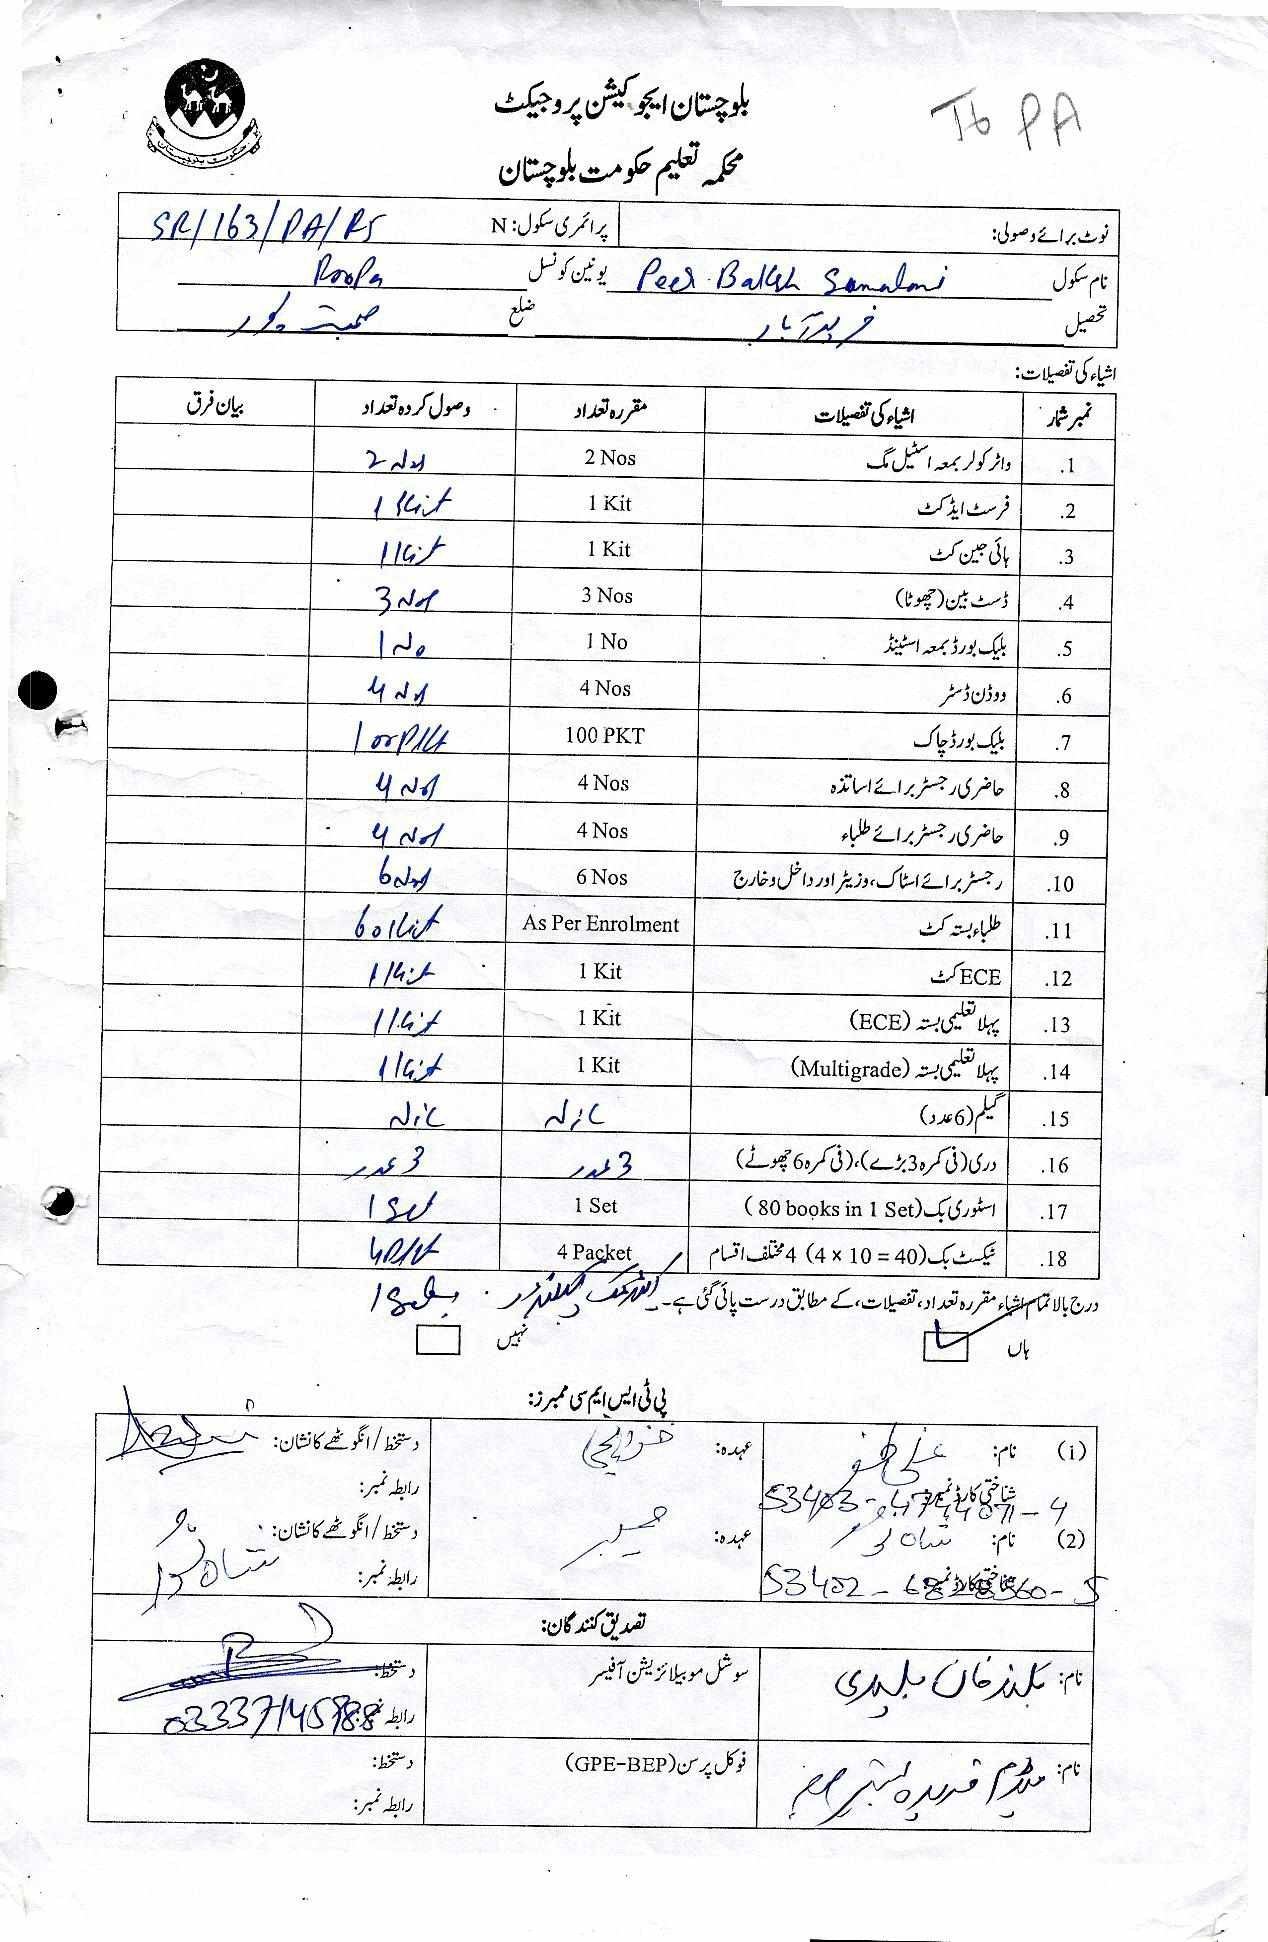 بلوچستان ایجوکیشن پروجیکٹ
محکمہ تعلیم حکومت بلوچستان
حکومت بلوچستان
نوٹ برائے وصولی: پرائمری سکول: N SR/163/PA/RS
نام سکول Peer Baksh Samalani یونین کونسل Roopa
تحصیل فریدآباد ضلع صحبت پور
اشیاء کی تفصیلات:
نمبر شمار اشیاء کی تفصیلات مقررہ تعداد وصول کردہ تعداد بیان فرق
1. واٹر کولر بمعہ اسٹیل مگ 2 Nos 2 Nos
2. فرسٹ ایڈ کٹ 1 Kit 1 Kit
3. ہائی جین کٹ 1 Kit 1 Kit
4. ڈسٹ بین (چھوٹا) 3 Nos 3 Nos
5. بلیک بورڈ بمعہ اسٹینڈ 1 No 1 No
6. ووڈن ڈسٹر 4 Nos 4 Nos
7. بلیک بورڈ چاک 100 PKT 100 PKt
8. حاضری رجسٹر برائے اساتذہ 4 Nos 4 Nos
9. حاضری رجسٹر برائے طلباء 4 Nos 4 Nos
10. رجسٹر برائے اسٹاک، وزیٹر اور داخل و خارج 6 Nos 6 Nos
11. طلباء بستہ کٹ As Per Enrolment 60 Kit
12. ECE کٹ 1 Kit 1 Kit
13. پہلا تعلیمی بستہ (ECE) 1 Kit 1 Kit
14. پہلا تعلیمی بستہ (Multigrade) 1 Kit 1 Kit
15. گیلم (6 عدد) N/L N/L
16. دری (فی کمرہ 3 بڑے)، (فی کمرہ 6 چھوٹے) 3 عدد 3 عدد
17. اسٹوری بک (80 books in 1 Set) 1 Set 1 Set
18. ٹیکسٹ بک (4 x 10 = 40) 4 مختلف اقسام 4 Packet 4 PKt
درج بالا تمام اشیاء مقررہ تعداد، تفصیلات، کے مطابق درست پائی گئی ہے۔
ہاں نہیں
پی ٹی ایس ایم سی ممبرز:
(i) نام: عہدہ: خزانچی دستخط / انگوٹھے کا نشان:
شناختی کارڈ نمبر: رابطہ نمبر:
(2) نام: عہدہ: ممبر دستخط / انگوٹھے کا نشان:
شناختی کارڈ نمبر: رابطہ نمبر:
تصدیق کنندگان:
نام: سوشل موبیلائزیشن آفیسر دستخط:
رابطہ نمبر: 03337145988
نام: میڈم فریدہ فوکل پرسن (GPE-BEP) دستخط:
رابطہ نمبر: